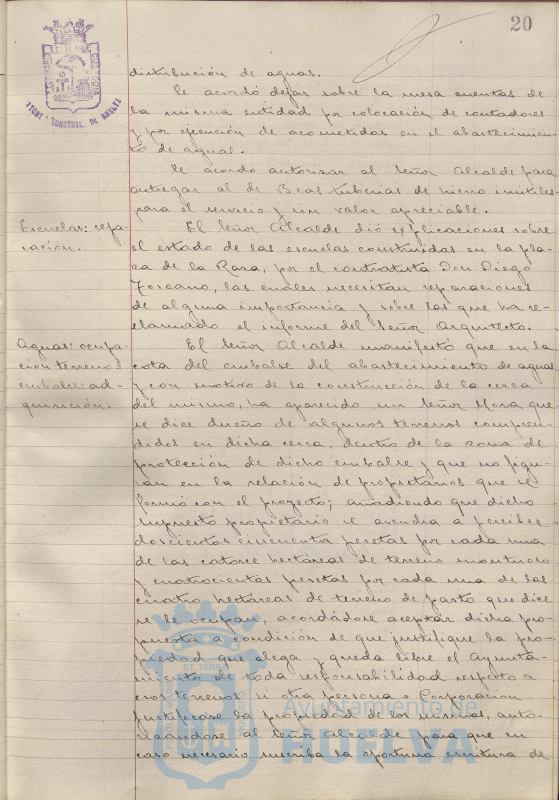 20
distribución de aguas.
Se acordó dejar sobre la mesa cuentas de
la misma entidad por colocación de contadores
y por ejecución de acometidas en el abastecimien-
to de aguas.
Se acordo autorizar al Señor Alcalde para
entregar al de Beas tuberias de hierro inútiles
para el servicio y sin valor apreciable.
Escuelas: repa-
ración.
El Señor Alcalde dió explicaciones sobre
el estado de las escuelas construidas en la pla-
za de la Raza, por el contratista Don Diego
Toscano, las cuales necesitan reparaciones
de alguna importancia y sobre las que ha re-
clamado el informe del Señor Arquitecto.
Aguas: ocupa-
ción terrenos
embalse: ad-
quisición.
El Señor Alcalde manifestó que en la
cota del embalse del abastecimiento de aguas
y con motivo de la construcción de la cerca
del mismo, ha aparecido un Señor Mora que
se dice dueño de algunos terrenos compren-
didos en dicha cerca, dentro de la zona de
protección de dicho embalse y que no figu-
ran en la relación de propietarios que se
formó con el proyecto; añadiendo que dicho
supuesto propietario se avendra a percibir
doscientas cincuenta pesetas por cada una
de las catorce hectáreas de terreno montuoso
y cuatrocientas pesetas por cada una de las
cuatro hectáreas de terreno de pasto que dice
se le ocupan, acordándose aceptar dicha pro-
puesta a condición de que justifique la pro-
piedad que alega y queda libre el Ayunta-
miento de toda responsabilidad respecto a
esos terrenos si otra persona o Corporacion
justificase la propiedad de los mismos, auto-
rizandose al Señor Alcalde para que en
caso necesario suscriba la oportuna escritura de
Ayuntamiento de
HUELVA